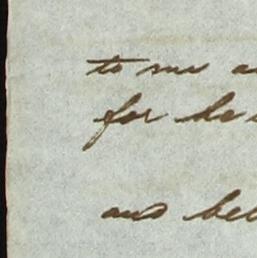 to me a
for he
and bel